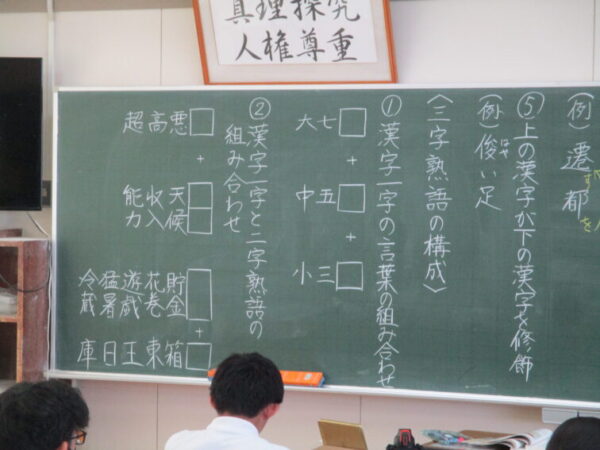 真理探究
人権尊重
(例) 遷都
⑤上の漢字が下の漢字を修飾
(例) 俊い足
はや
〈三字熟語の構成〉
①漢字一字の言葉の組み合わせ
□+□+□
七五三
大中小
②漢字一字と二字熟語の
組み合わせ
□+□□
悪天候
高収入
超能力
□+□
貯金箱
花巻東
遊戯王
猛暑日
冷蔵庫